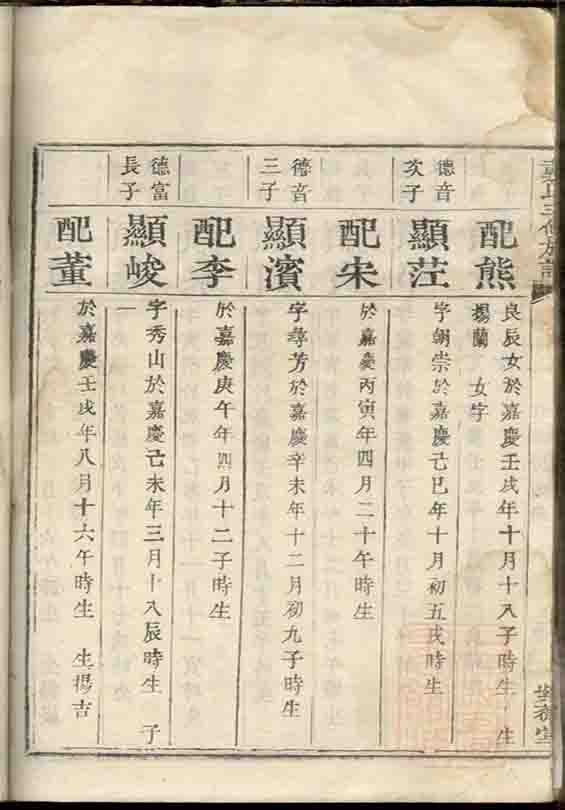 氏三修族譜
配熊
良辰女於嘉慶壬戌年十月十八子時生 生
揚蘭 女字
德音
次子
顯茳
字朝崇於嘉慶己巳年十月初五戌時生
配宋
於嘉慶丙寅年四月二十午時生
德音
三子
顯濱
字尋芳於嘉慶辛未年十二月初九子時生
配李
於嘉慶庚午年四月十二子時生
德富
長子
顯峻
字秀山於嘉慶己未年三月十八辰時生 子
一
配董
於嘉慶壬戌年八月十六午時生 生揚吉